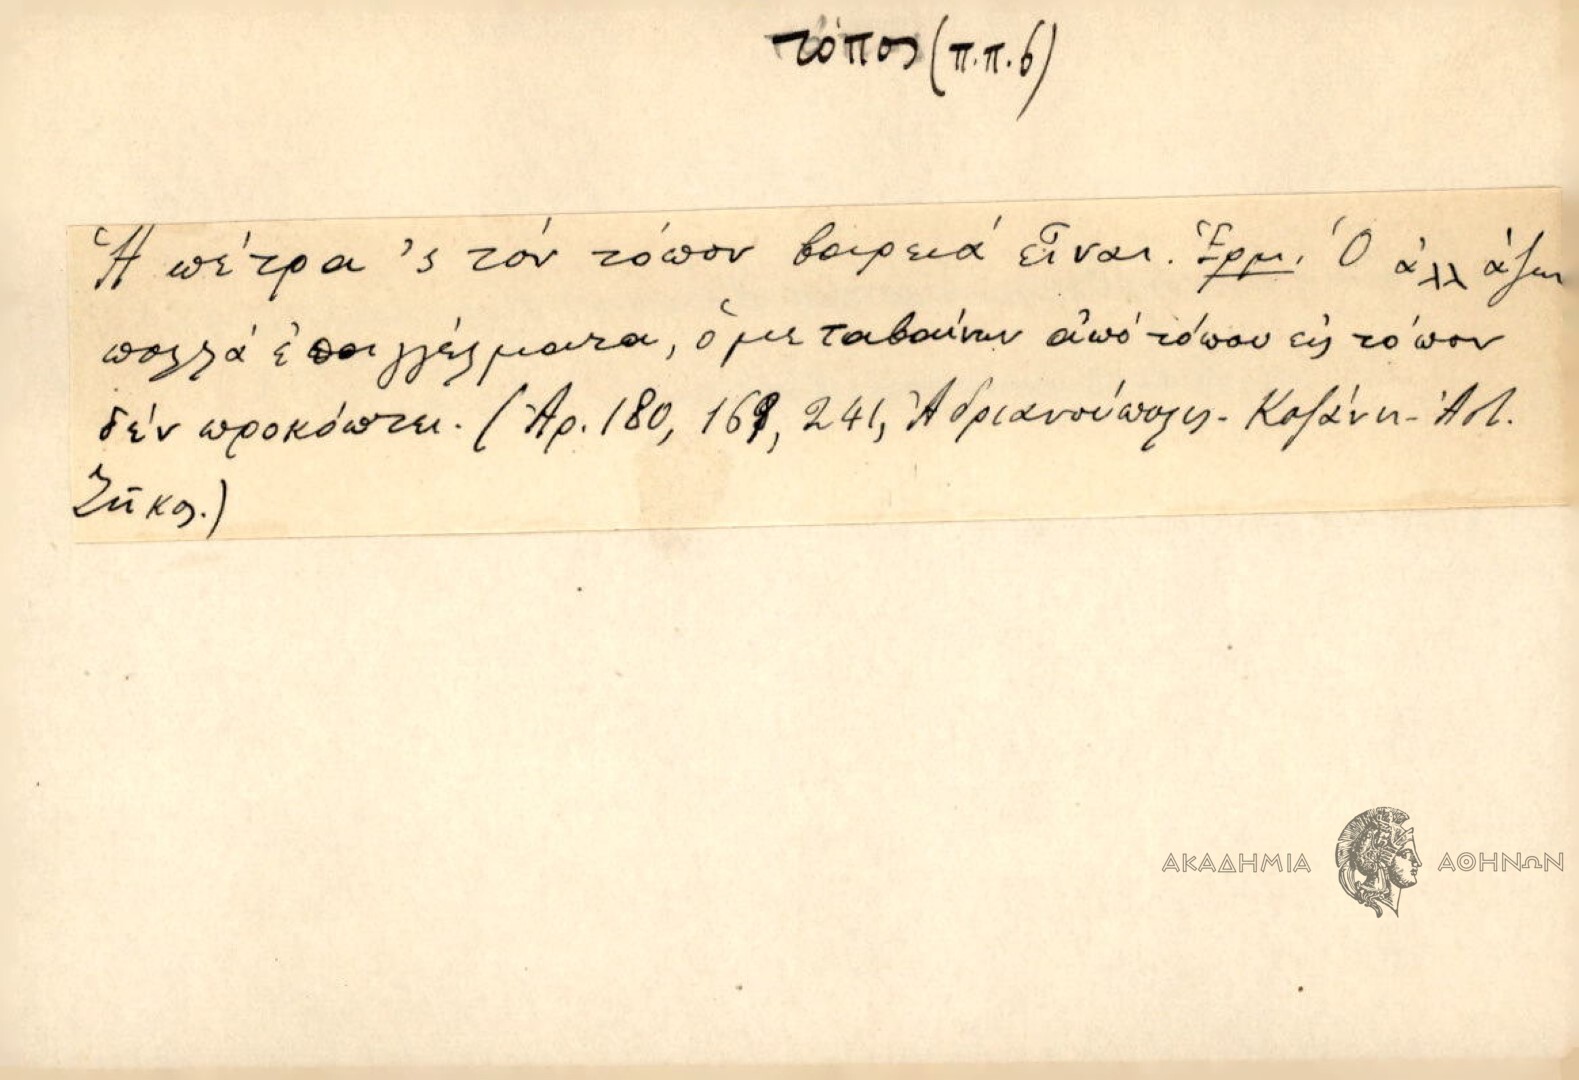 τόπος (π.π.6)
Ἡ πέτρα 'ς τόν τόπον βαρειά εἶναι. Ἑρμ. Ὁ ἀλλάζων
πολλά ἐπαγγέλματα, ὁ μεταβαίνων ἀπό τόπου εἰς τόπον
δέν προκόπτει. (Ἀρ. 180, 169, 241, Ἀδριανούπολις - Κοζάνη - Ἀπ.
Ζήκος.)
ΑΚΑΔΗΜΙΑ ΑΘΗΝΩΝ